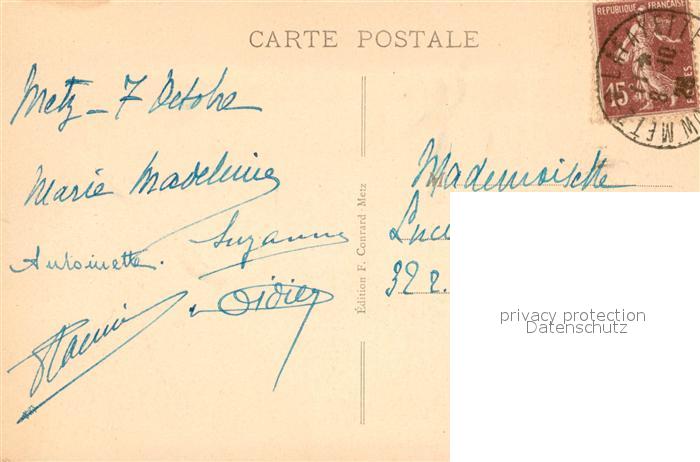 CARTE POSTALE
REPUBLIQUE FRANÇAISE
15
METZ
Metz - 7 Octobre
Marie Madeleine
Suzanne
Antoinette.
Didier
Édition F. Conrard - Metz
Mademoiselle
Luci
32 r.
privacy protection
Datenschutz